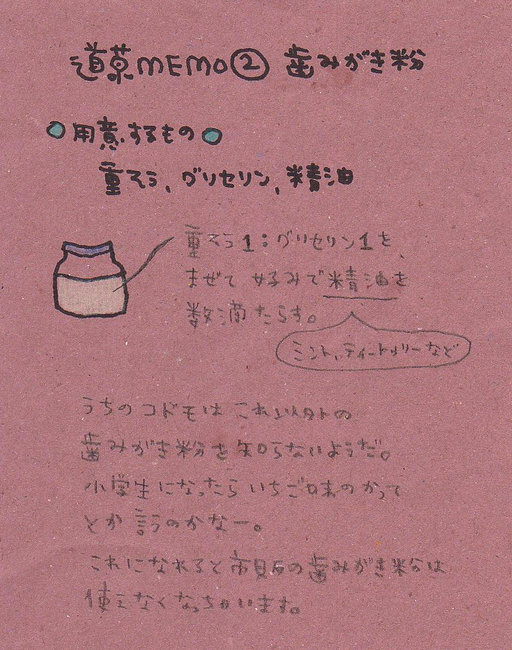 道草MEMO② 歯みがき粉
用意するもの
重そう、グリセリン、精油
重そう1:グリセリン1を、
まぜて 好みで精油を
数滴たらす。
ミント、ティートゥリーなど
うちのコドモは これ以外の
歯みがき粉を知らないようだ。
小学生になったら いちご味のかって
とか 言うのかなー。
これになれると市販の歯みがき粉は
使えなくなっちゃいます。